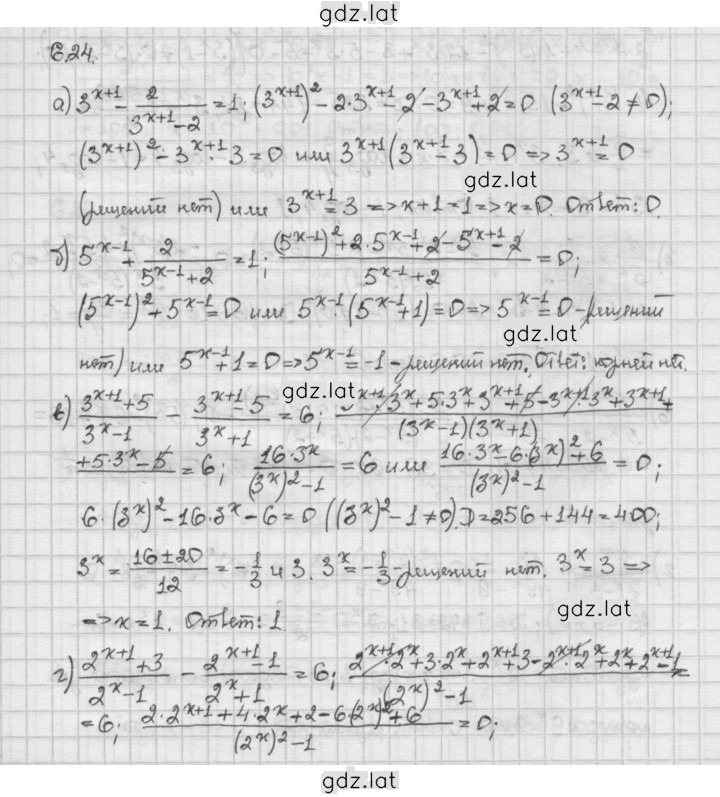 gdz.lat
6.24.
а) 3^{x+1} - \frac{2}{3^{x+1}-2} = 1; (3^{x+1})^2 - 2·3^{x+1} - 2 - 3^{x+1} + 2 = 0 (3^{x+1} - 2 ≠ 0);
(3^{x+1})^2 - 3^{x+1}·3 = 0 или 3^{x+1}(3^{x+1} - 3) = 0 => 3^{x+1} = 0
gdz.lat
(решений нет) или 3^{x+1} = 3 => x+1 = 1 => x = 0. Ответ: 0.
б) 5^{x-1} + \frac{2}{5^{x-1}+2} = 1; \frac{(5^{x-1})^2 + 2·5^{x-1} + 2 - 5^{x+1} - 2}{5^{x-1}+2} = 0;
(5^{x-1})^2 + 5^{x-1} = 0 или 5^{x-1}(5^{x-1} + 1) = 0 => 5^{x-1} = 0 - решений
gdz.lat
нет) или 5^{x-1} + 1 = 0 => 5^{x-1} = -1 - решений нет. Ответ: корней нет.
gdz.lat
в) \frac{3^{x+1}+5}{3^x-1} - \frac{3^{x+1}-5}{3^x+1} = 6; \frac{3^{x+1}·3^x + 5·3^x + 3^{x+1} + 5 - 3^{x+1}·3^x + 3^{x+1} +}{(3^x-1)(3^x+1)}
\frac{+5·3^x - 5}{} = 6; \frac{16·3^x}{(3^x)^2-1} = 6 или \frac{16·3^x - 6·(3^x)^2 + 6}{(3^x)^2-1} = 0;
6·(3^x)^2 - 16·3^x - 6 = 0 ((3^x)^2 - 1 ≠ 0). D = 256 + 144 = 400;
3^x = \frac{16±20}{12} = -\frac{1}{3} и 3. 3^x = -\frac{1}{3} - решений нет. 3^x = 3 =>
=> x = 1. Ответ: 1.
gdz.lat
г) \frac{2^{x+1}+3}{2^x-1} - \frac{2^{x+1}-1}{2^x+1} = 6; \frac{2^{x+1}·2^x + 3·2^x + 2^{x+1} + 3 - 2^{x+1}·2^x + 2^x + 2^{x+1} - 1}{(2^x)^2-1} =
= 6; \frac{2·2^{x+1} + 4·2^x + 2 - 6·(2^x)^2 + 6}{(2^x)^2-1} = 0;
gdz.lat